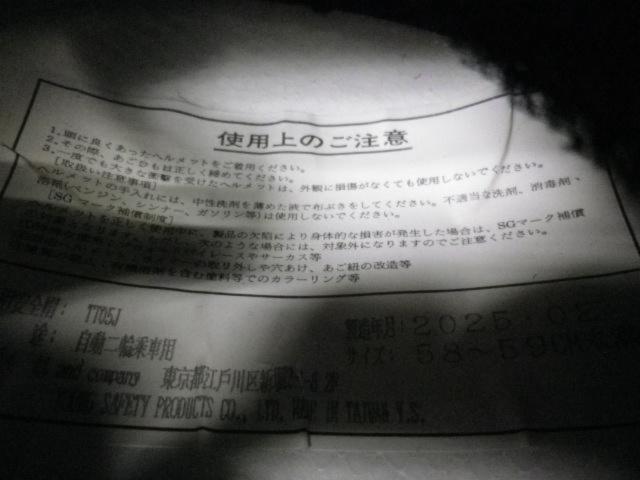 使用上のご注意
1.頭に良くあったヘルメットをご着用ください。
2.その際、あごひもは正しく締めてください。
3.一度でも大きな衝撃を受けたヘルメットは、外観に損傷がなくても使用しないでください。
[取扱い注意事項]
ヘルメットの手入れには、中性洗剤を薄めた液で布ぶきをしてください。不適当な洗剤、消毒剤、
溶剤(ベンジン、シンナー、ガソリン等)は使用しないでください。
[SGマーク補償制度]
ヘルメットを正しく使用中に、製品の欠陥により身体的な損害が発生した場合は、SGマーク補償
次のような場合には、対象外になりますのでご注意ください。
レースやサーカス等
の取り外しや穴あけ、あご紐の改造等
溶剤を含む塗料等でのカラーリング等
安全帽: TT05J
製造年月: 2025.02
途: 自動二輪乗車用
サイズ: 58〜59CM
and company 東京都江戸川区
SAFETY PRODUCTS CO., LTD. MADE IN TAIWAN